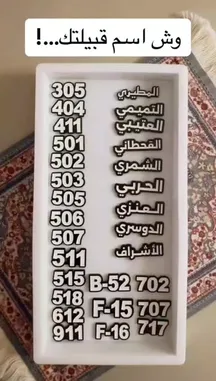 وش اسم قبيلتك...!
305 المطيري
404 التميمي
411 العتيبي
501 القحطاني
502 الشمري
503 الحربي
505 العنزي
506 الدوسري
507
511 الأشراف
515 B-52 702
518 F-15 707
612 F-16 717
911